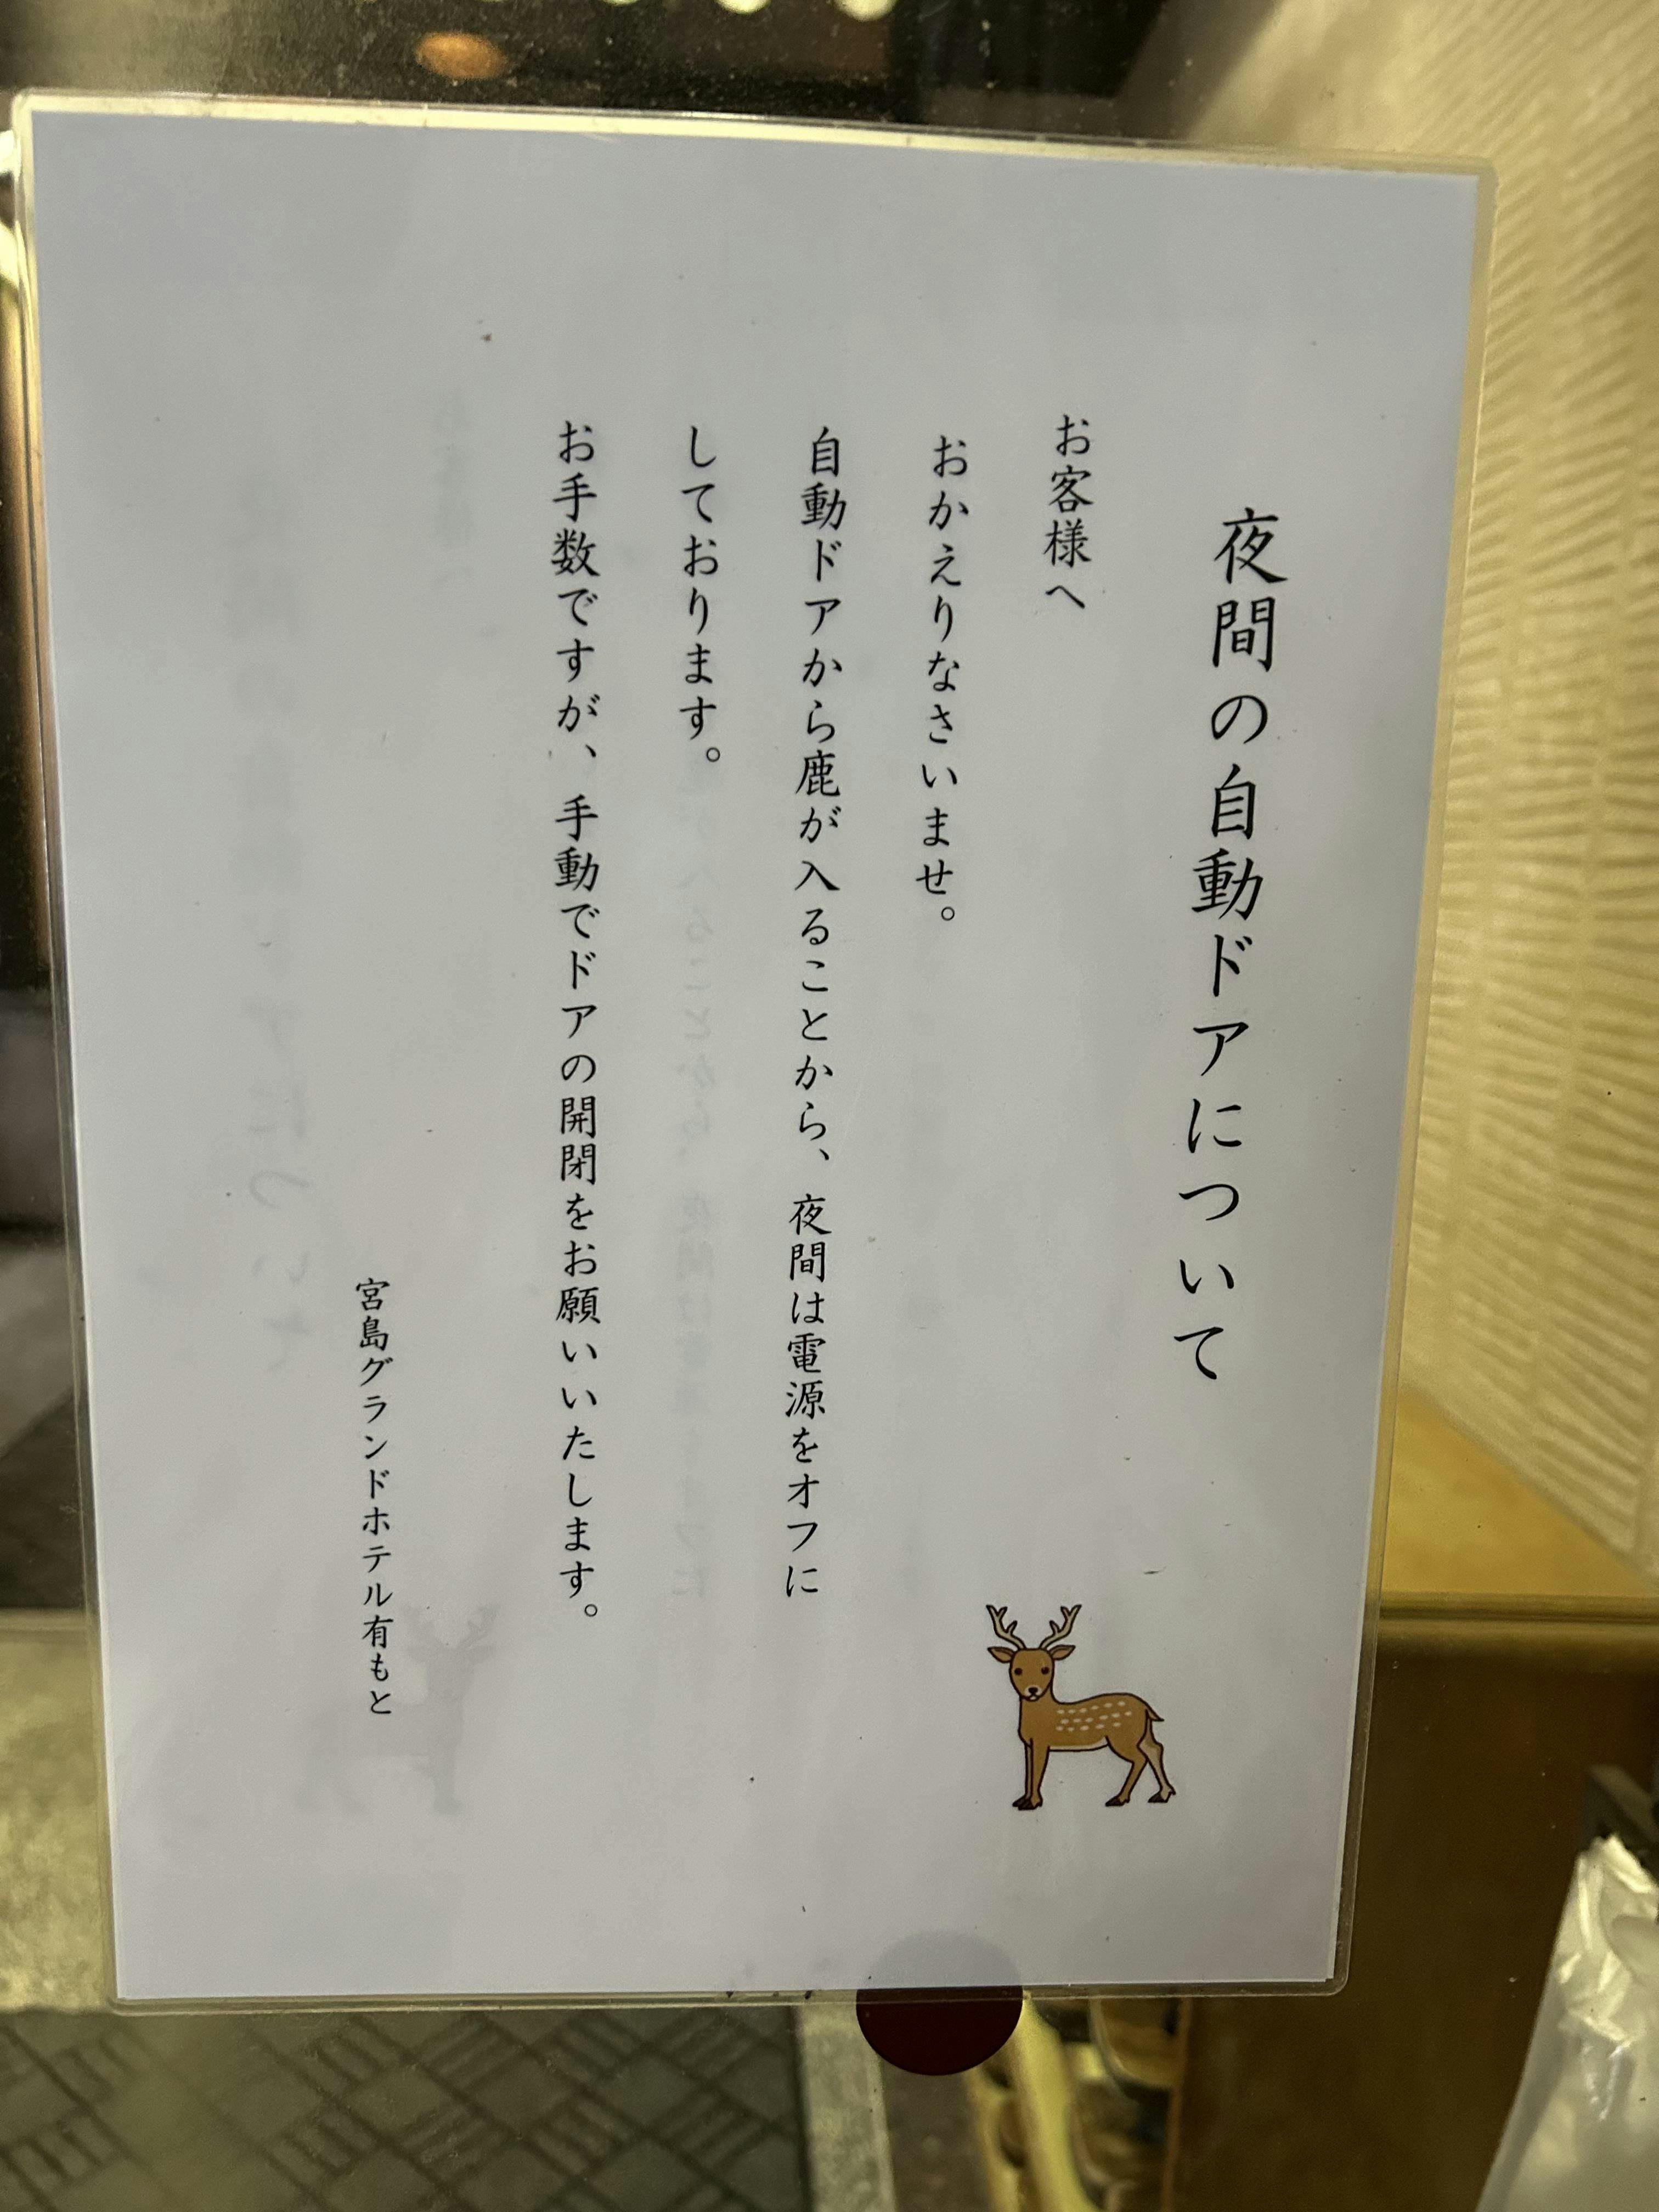 夜間の自動ドアについて
お客様へ
おかえりなさいませ。
自動ドアから鹿が入ることから、夜間は電源をオフに
しております。
お手数ですが、手動でドアの開閉をお願いいたします。
宮島グランドホテル有もと